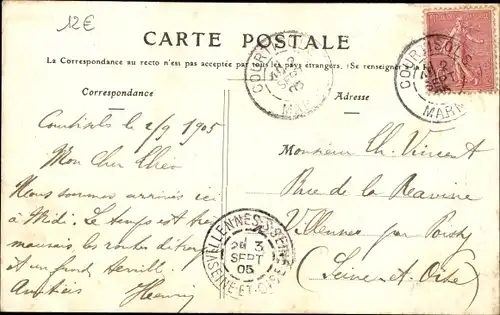 12€
CARTE POSTALE
La Correspondance au recto n'est pas acceptée par tous les pays étrangers. (Se renseigner à la
Correspondance
Adresse
COURTISOLS
2 SEPT 05
MARNE
COURTISOLS
2 SEPT 05
MARNE
Courtisols 2/9 1905
Mon Cher
Nous sommes arrivés ici
à Midi. Le temps est très
mauvais, les routes
et un fond
Amitiés Henri
Monsieur Th. Vincent
Rue de la Ravine
Villennes par Poissy
(Seine et Oise)
VILLENNES-S-SEINE
2E 3
SEPT
05
SEINE-ET-OISE